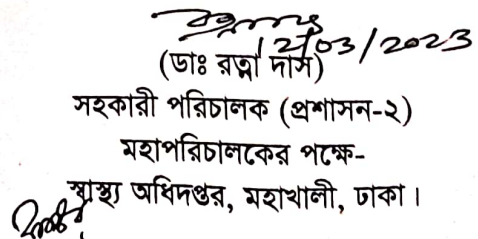 12/03/2023
(ডাঃ রত্না দাস)
সহকারী পরিচালক (প্রশাসন-২)
মহাপরিচালকের পক্ষে-
স্বাস্থ্য অধিদপ্তর, মহাখালী, ঢাকা।